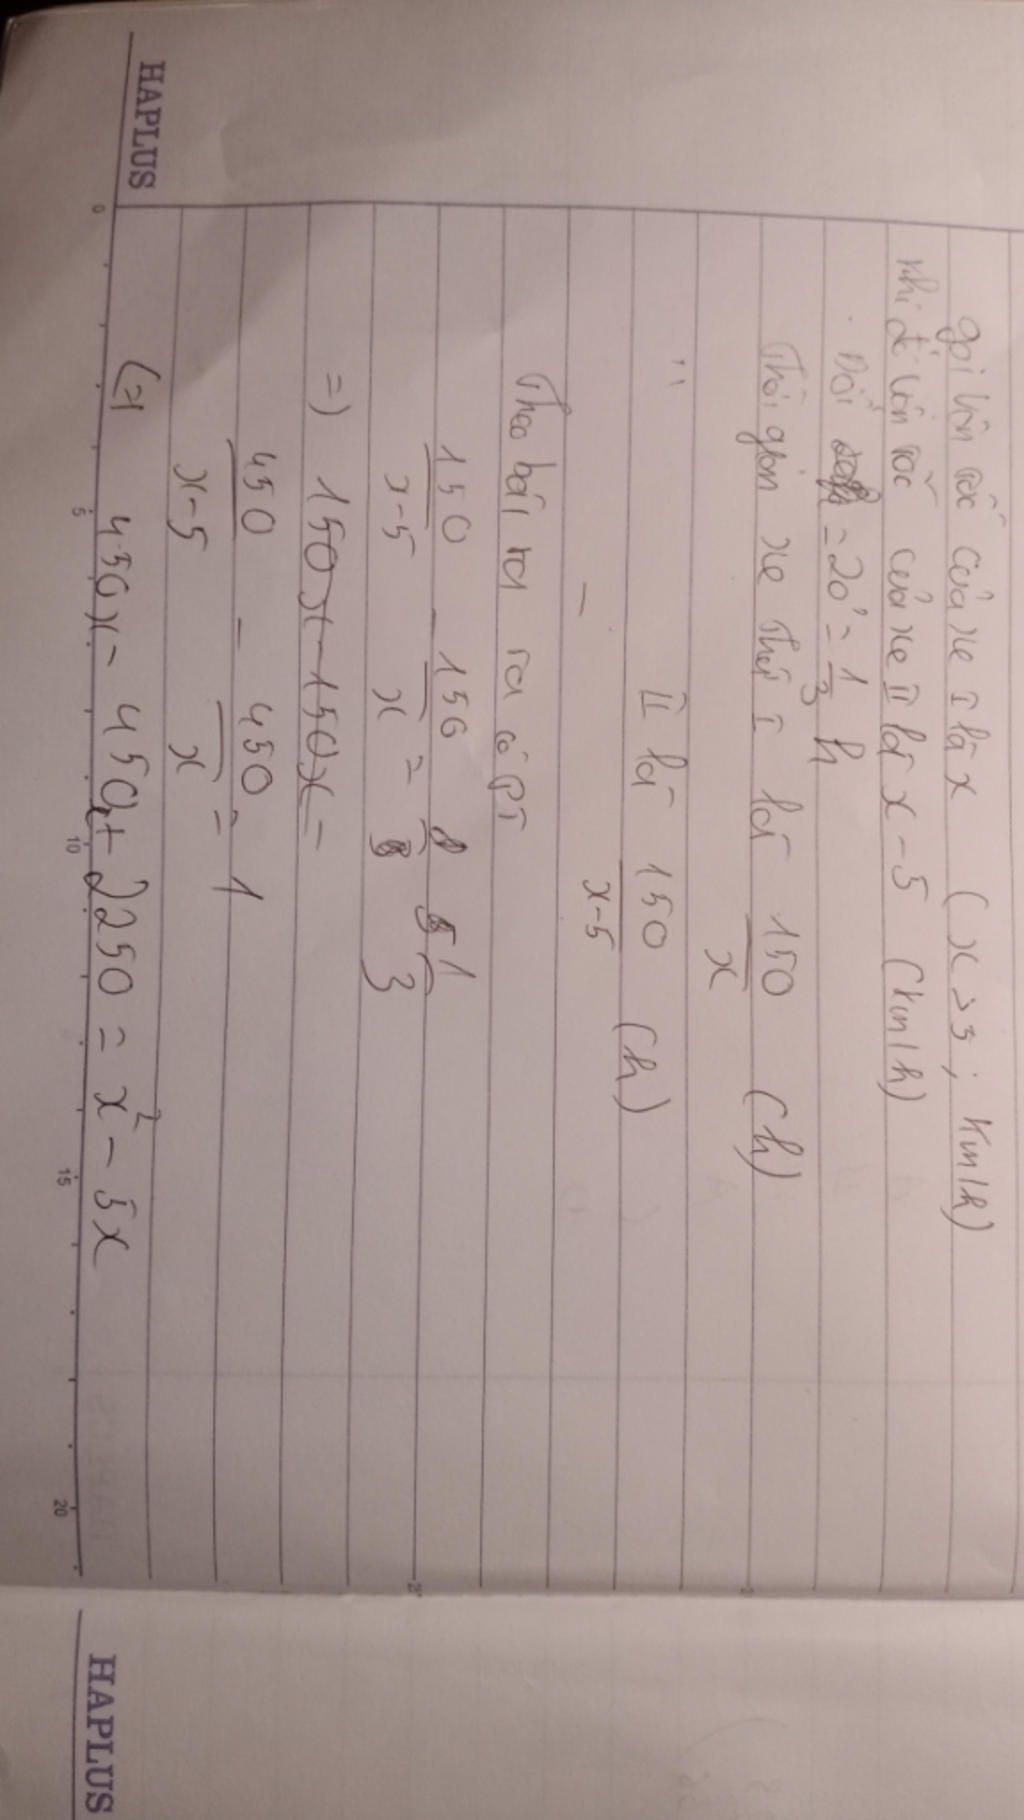 gọi vận tốc của xe I là x ( x > 5 ; km/h)
khi đó vận tốc của xe II là x - 5 (km/h)
Đổi = 20' = 1/3 h
Thời gian xe thứ I là 150/x (h)
" II là 150/(x-5) (h)
-
Theo bài ra ra có PT
150/(x-5) - 150/x = 1/3
=) 150x - 150x =
450/(x-5) - 450/x = 1
(=) 450x - 450x + 2250 = x² - 5x
0 5 10 15 20
HAPLUS
HAPLUS